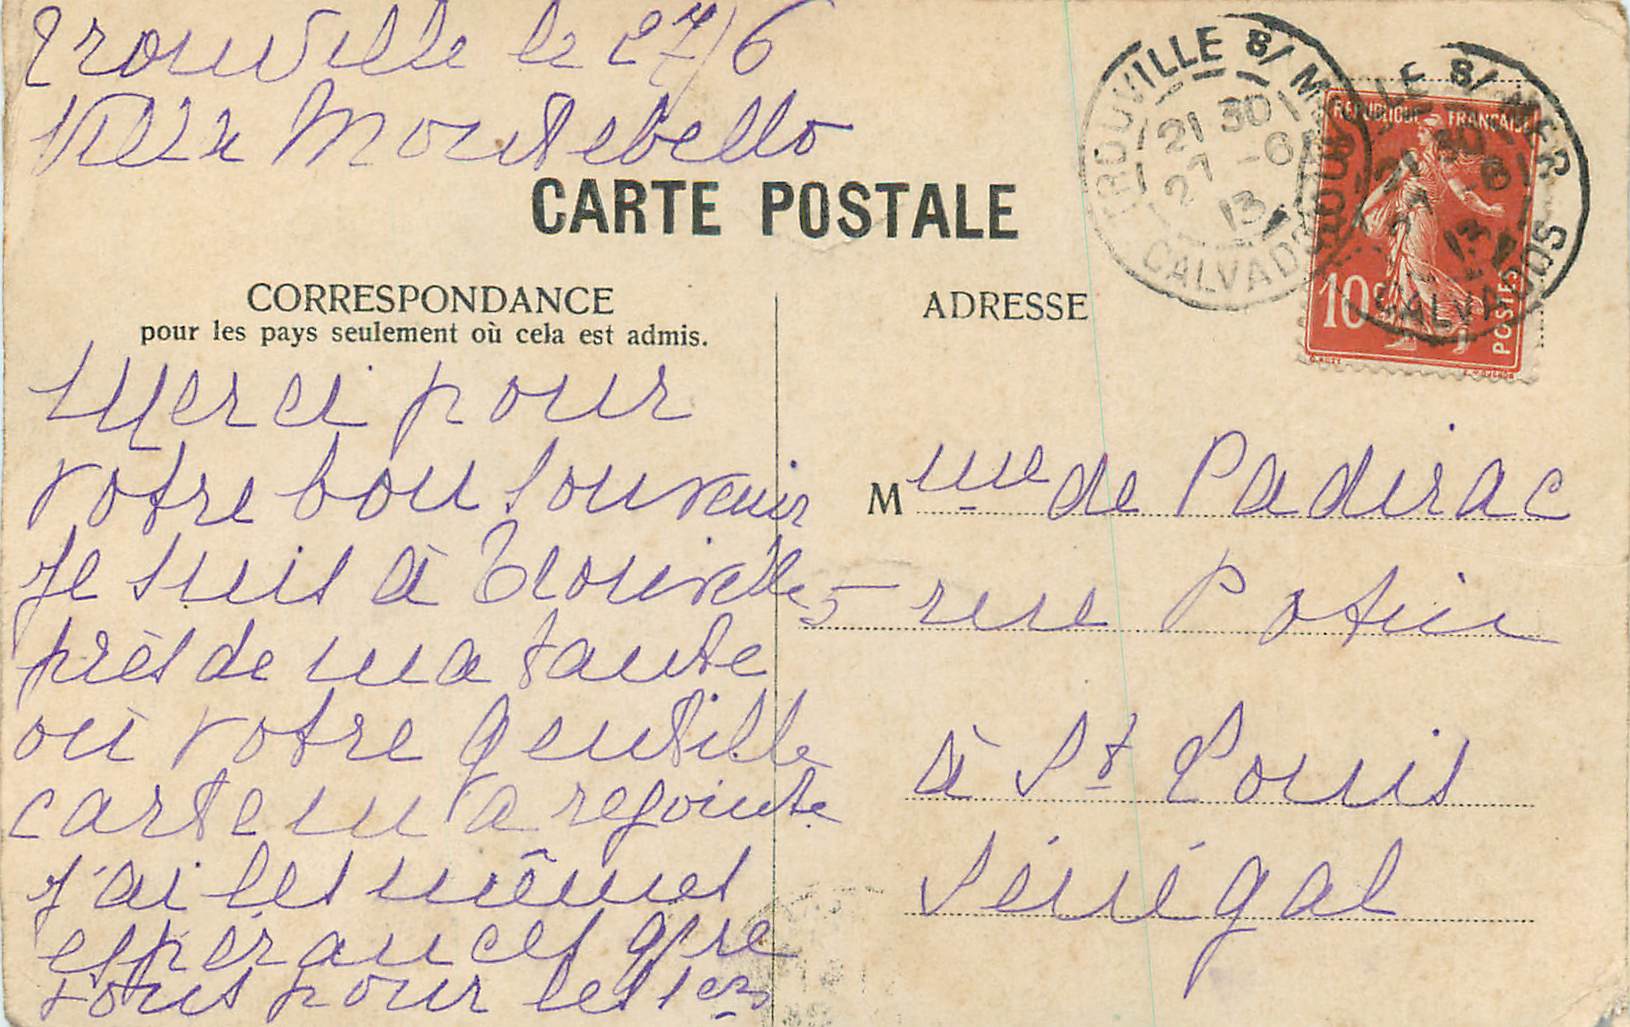 Trouville le 27/6
Villa Montebello
CARTE POSTALE
CORRESPONDANCE
pour les pays seulement où cela est admis.
Merci pour
votre bon souvenir
Je suis à Trouville
près de ma tante
où votre gentille
carte m'a rejointe
J'ai les mêmes
espérances que
vous pour les 1ers
ADRESSE
Mme de Padirac
5 rue Potin
à St Louis
Sénégal
TROUVILLE S/ MER
21 30
27 -6
13
CALVADOS
TROUVILLE S/ MER
21 30
27 -6
13
CALVADOS
REPUBLIQUE FRANÇAISE
10c
POSTES